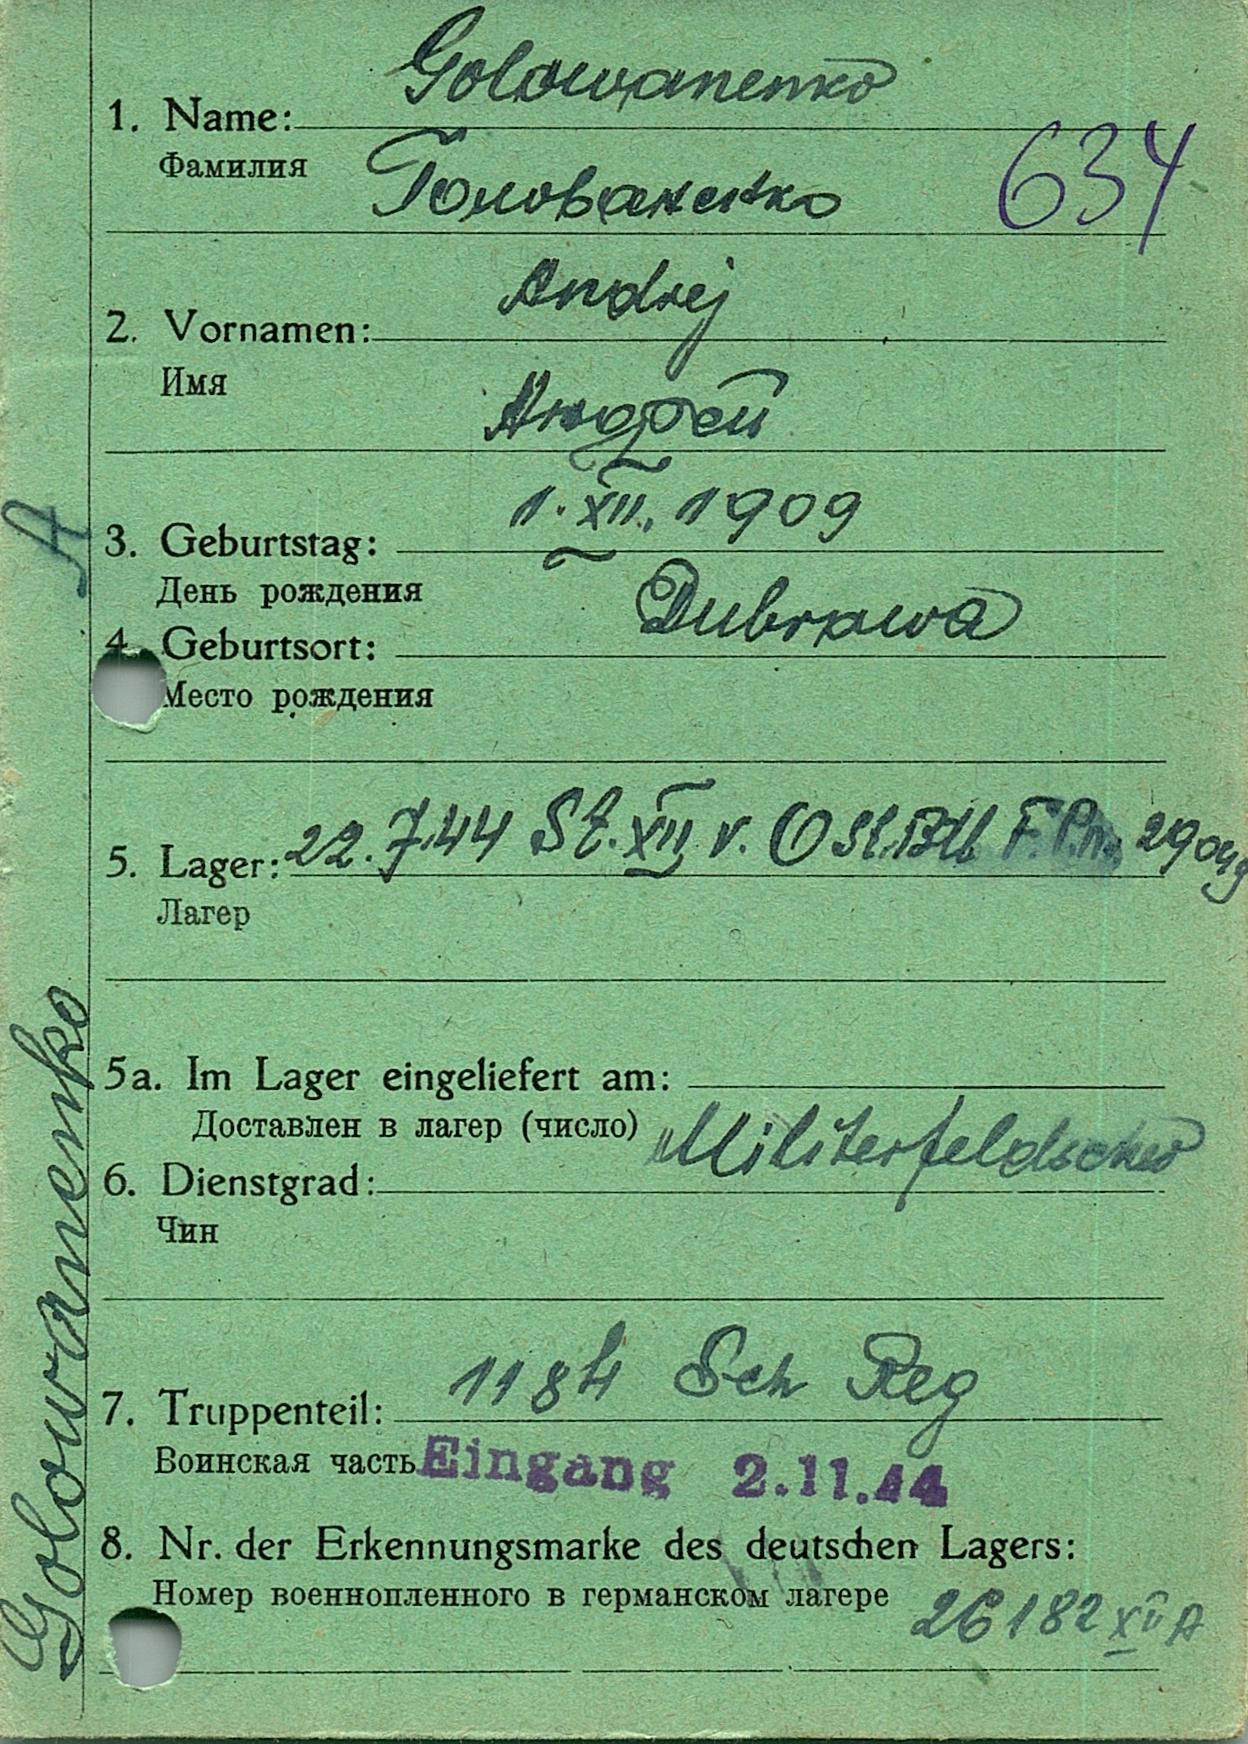 Golowanenko
1. Name:
Фамилия
Голованенко
634
Andrej
2. Vornamen:
Имя
Андрей
1. XII. 1909
3. Geburtstag:
День рождения
Dubrawa
4. Geburtsort:
Место рождения
22.7.44 St. XII v. Ost.Btl F.P.n. 29049
5. Lager:
Лагер
5a. Im Lager eingeliefert am:
Доставлен в лагер (число)
6. Dienstgrad:
Чин
1184 Sch Reg
7. Truppenteil:
Воинская часть
Eingang 2.11.44
8. Nr. der Erkennungsmarke des deutschen Lagers:
Номер военнопленного в германском лагере
26182 XII A
Golowanenko A